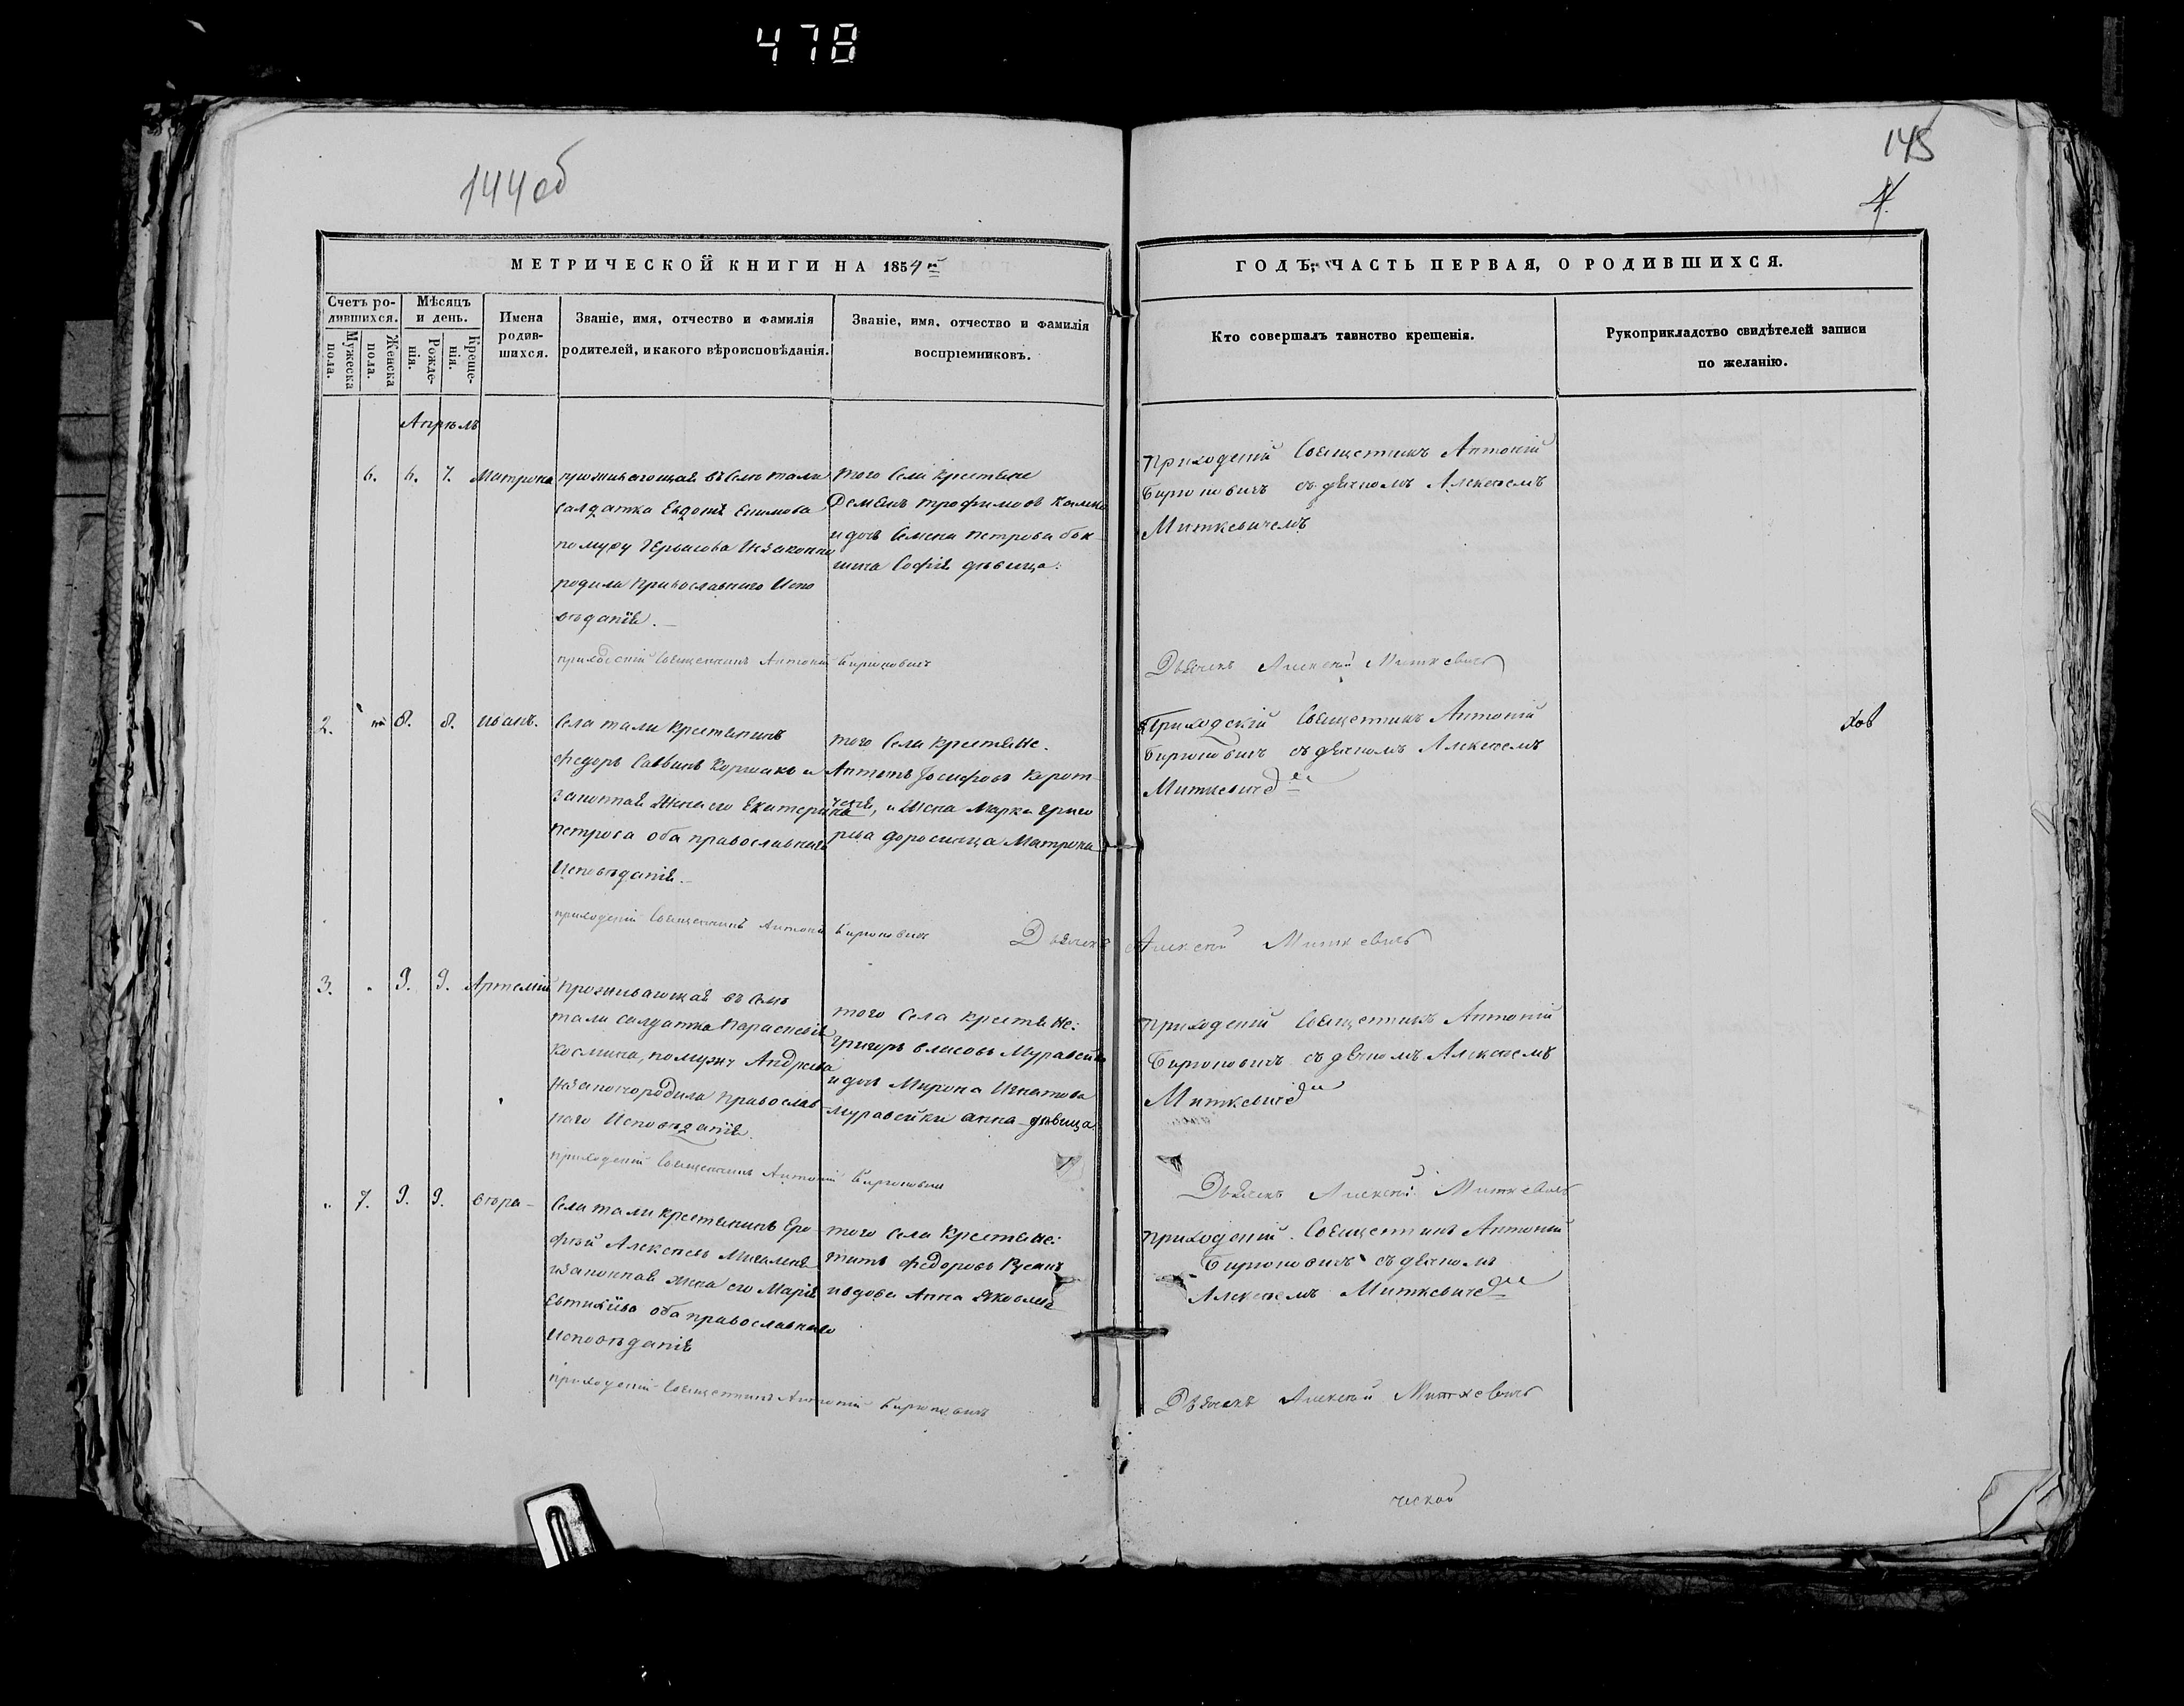 478
144об
145
4.
МЕТРИЧЕСКОЙ КНИГИ НА 1854й
ГОДЪ, ЧАСТЬ ПЕРВАЯ, О РОДИВШИХСЯ.
Счетъ родившихся.
Мужеска пола.
Женска пола.
Мѣсяцъ и день.
Рожденія.
Крещенія.
Имена родившихся.
Званіе, имя, отчество и фамилія
родителей, и какого вѣроисповѣданія.
Званіе, имя, отчество и фамилія
воспріемниковъ.
Кто совершалъ таинство крещенія.
Рукоприкладство свидѣтелей записи
по желанію.
Апрѣль
6. 6. 7. Матрона
проживающая въ селѣ тали
салдатка Евдокія
по мужу незаконно
родила Православнаго Испо
вѣданія.
того села крестьяне
Трофимовъ
и дочь Семена Петрова
Софія дѣвица.
Приходскій Священникъ Антоній
Бирюковичъ съ дьячкомъ Алексѣемъ
Миткевичемъ
приходскій Священникъ Антоній Бирюковичъ
Дьячекъ Алексѣй Миткевичъ
2. 8. 8. иванъ.
села тали крестьянинъ
федоръ Саввинъ и
законная жена его Екатерина
Петрова оба православнаго
Исповѣданія.
того села крестьяне.
Антонъ Іосифовъ
и жена Марка Григо
рьева Матрона
Приходскій Священникъ Антоній
Бирюковичъ съ дьячкомъ Алексѣемъ
Миткевичемъ
хов
приходскій Священникъ Антоній Бирюковичъ
Дьячекъ Алексѣй Миткевичъ
3. 9. 9. Артемій
проживающая въ селѣ
тали салдатка Параскевія
Космина, по мужу Андреева
незаконнородила Православ
наго Исповѣданія.
того села крестьяне:
Григорій власовъ Муравейко
и дочь Мирона Игнатова
муравейки анна дѣвица.
приходскій Священникъ Антоній
Бирюковичъ съ дьячкомъ Алексѣемъ
Миткевичемъ
приходскій Священникъ Антоній Бирюковичъ
Дьячекъ Алексѣй Миткевичъ
7. 9. 9. вѣра
села тали крестьянинъ Еро
фѣй Алексѣевъ
законная жена его Марія
Евтихіева оба православнаго
Исповѣданія
того села крестьяне:
титъ федоровъ
вдова Анна Яковлева
приходскій Священникъ Антоній
Бирюковичъ съ дьячкомъ
Алексѣемъ Миткевичемъ
приходскій Священникъ Антоній Бирюковичъ
Дьячекъ Алексѣй Миткевичъ
ческой